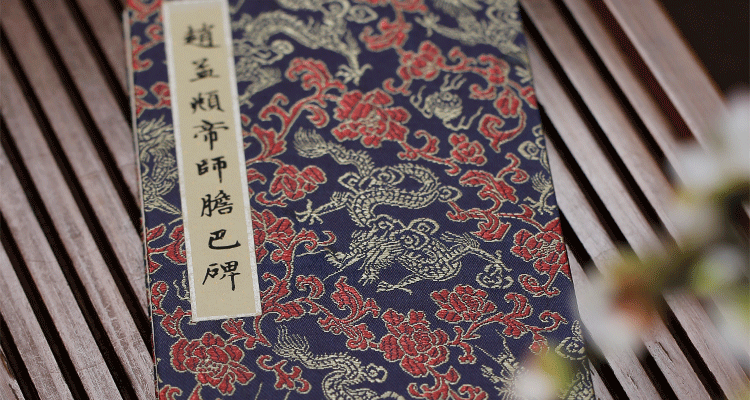 趙孟頫帝師膽巴碑